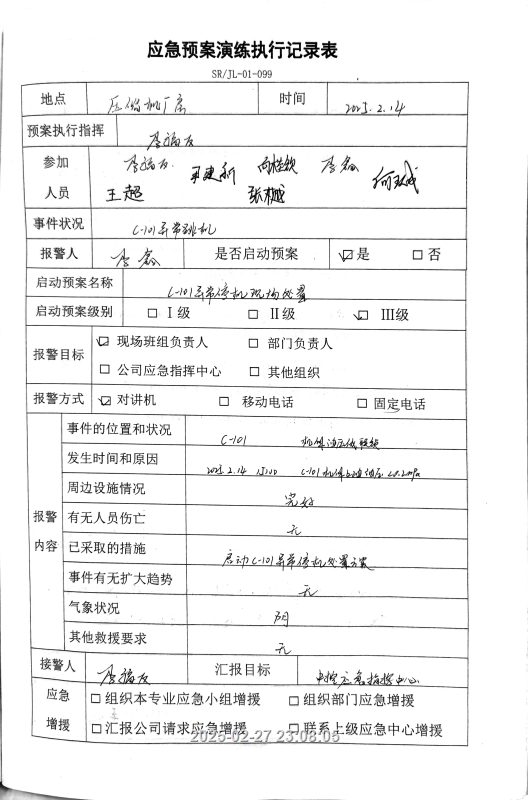 应急预案演练执行记录表
SR/JL-01-099
地点 压缩机厂房 时间 2025.2.14
预案执行指挥 李福友
参加 李福友 王建新 李鑫
人员 王超
事件状况 C-101异常跳机
报警人 李鑫 是否启动预案 ☑是 □否
启动预案名称 C-101异常停机现场处置
启动预案级别 □Ⅰ级 □Ⅱ级 ☑Ⅲ级
报警目标 ☑现场班组负责人 □部门负责人
□公司应急指挥中心 □其他组织
报警方式 ☑对讲机 □移动电话 □固定电话
报警
内容
事件的位置和状况 C-101 油压低联锁
发生时间和原因 2025.2.14 15:00 C-101
周边设施情况 完好
有无人员伤亡 无
已采取的措施 启动C-101异常停机处置方案
事件有无扩大趋势 无
气象状况 阴
其他救援要求 无
接警人 李福友 汇报目标 中控应急指挥中心
应急
增援
□组织本专业应急小组增援 □组织部门应急增援
□汇报公司请求应急增援 □联系上级应急中心增援
2025-02-27 23:08:05